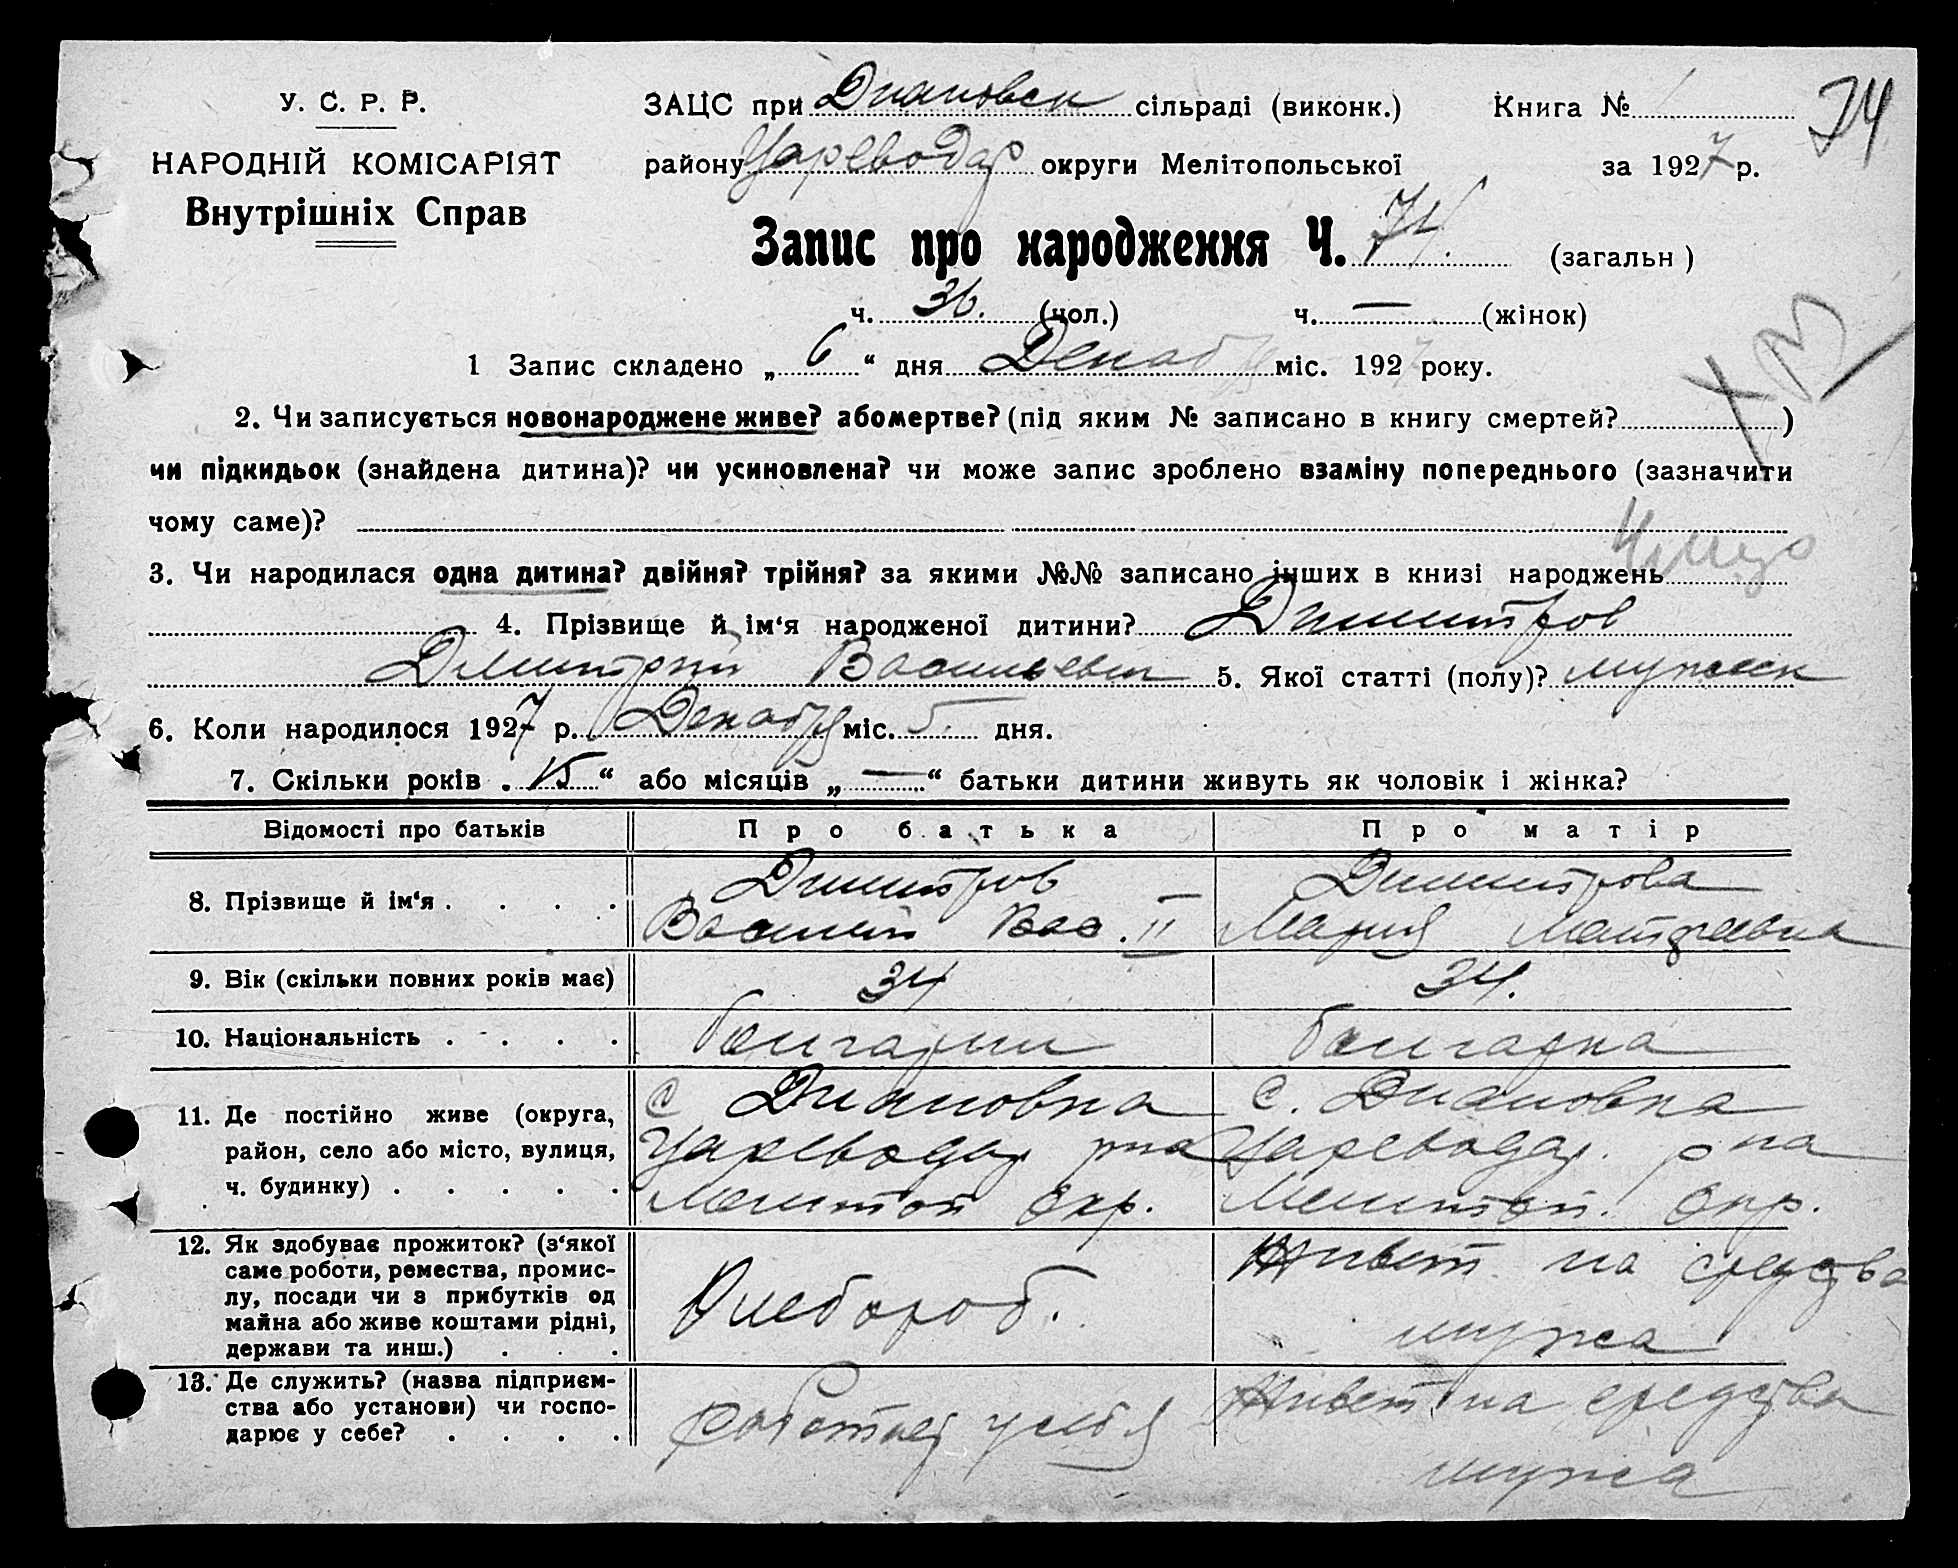 У. С. Р. Р.
НАРОДНІЙ КОМІСАРІЯТ
Внутрішніх Справ
ЗАЦС при Диановск сільраді (виконк.)
Книга №
74
району Цареводар округи Мелітопольської
за 1927 р.
Запис про народження Ч. 74. (загальн)
ч. 36. (чол.) ч. — (жінок)
1 Запис складено „ 6 “ дня Декабр міс. 1927 року.
2. Чи записується новонароджене живе? або мертве? (під яким № записано в книгу смертей? )
чи підкидьок (знайдена дитина)? чи усиновлена? чи може запис зроблено взаміну попереднього (зазначити
чому саме)?
3. Чи народилася одна дитина? двійня? трійня? за якими №№ записано інших в книзі народжень
4. Прізвище й ім‘я народженої дитини? Димитров
Димитрий Васильевич 5. Якої статті (полу)? мужск
6. Коли народилося 1927 р. Декабря міс. 5. дня.
7. Скільки років „ 15 “ або місяців „ — “ батьки дитини живуть як чоловік і жінка?
Відомості про батьків Про батька Про матір
8. Прізвище й ім‘я . . . .
Димитров
Василий Вас. II
Димитрова
Мария Матвеевна
9. Вік (скільки повних років має) 34 34.
10. Національність . . . . болгарин болгарка
11. Де постійно живе (округа,
район, село або місто, вулиця,
ч. будинку) . . . . .
с Диановка
Цареводар рна
Мелитоп Окр.
с. Диановка
Цареводар. рна
Мелитоп. Окр.
12. Як здобуває прожиток? (з‘якої
саме роботи, ремества, промис-
лу, посади чи з прибутків од
майна або живе коштами рідні,
держави та инш.) . . .
Хлебороб.
Живет на средства
мужа
13. Де служить? (назва підприєм-
ства або установи) чи госпо-
дарює у себе? . . . .
работает у себя
Живет на средства
мужа